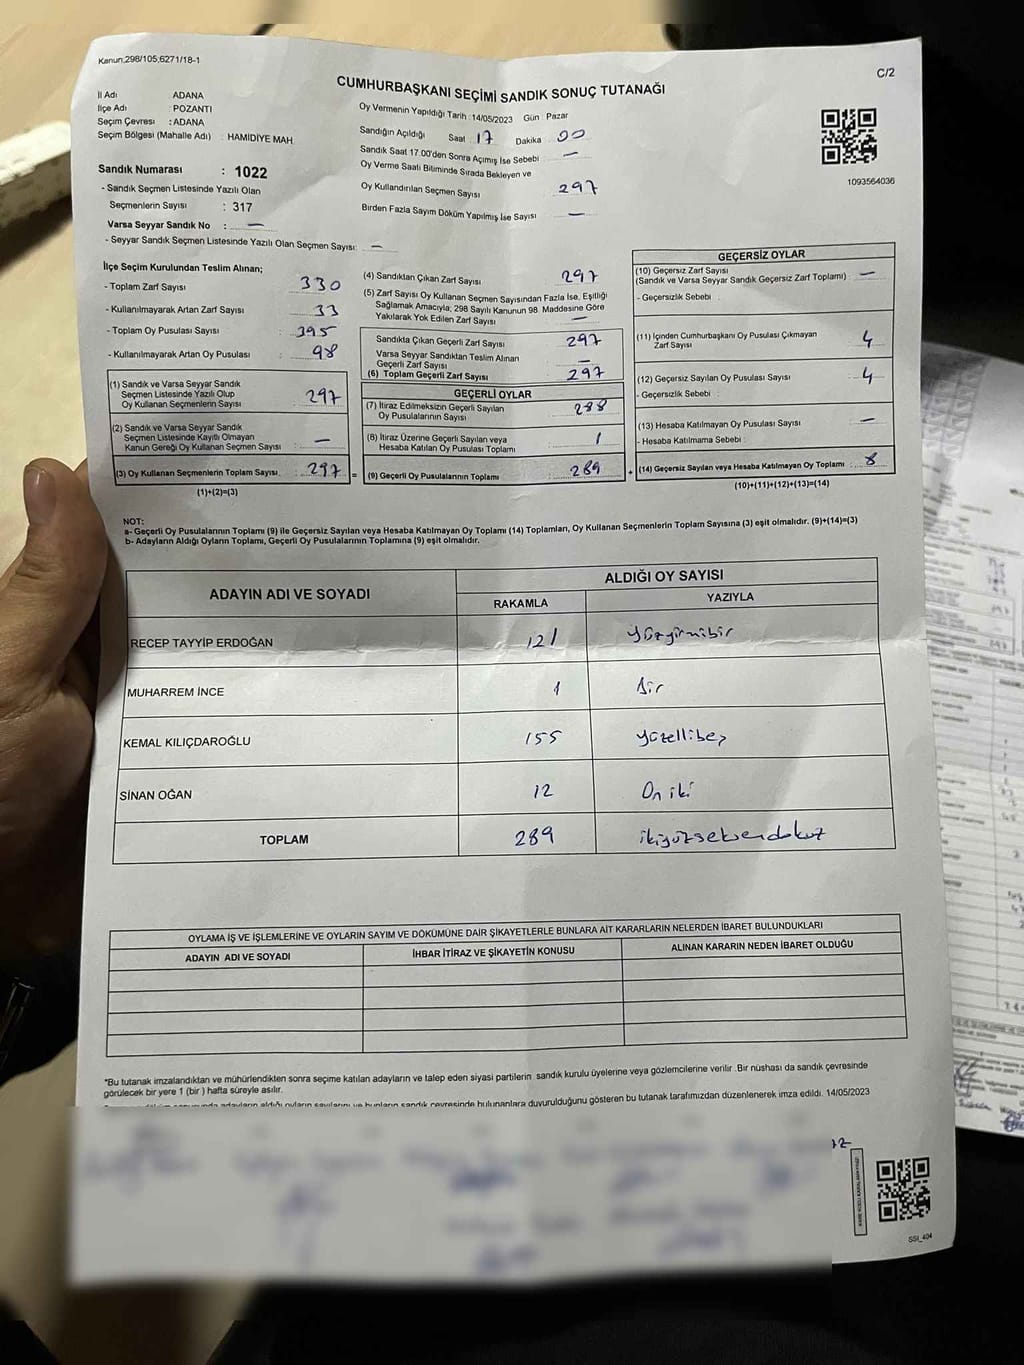 Kanun;298/105;6271/18-1
C/2
CUMHURBAŞKANI SEÇİMİ SANDIK SONUÇ TUTANAĞI
İl Adı ADANA
İlçe Adı : POZANTI
Seçim Çevresi : ADANA
Seçim Bölgesi (Mahalle Adı) : HAMİDİYE MAH
Oy Vermenin Yapıldığı Tarih :14/05/2023 Gün : Pazar
Sandığın Açıldığı Saat 17 Dakika 00
Sandık Saat 17.00'den Sonra Açımış İse Sebebi : —
Oy Verme Saati Bitiminde Sırada Bekleyen ve
Oy Kullandırılan Seçmen Sayısı 297
Birden Fazla Sayım Döküm Yapılmış İse Sayısı : —
1093564036
Sandık Numarası : 1022
- Sandık Seçmen Listesinde Yazılı Olan
Seçmenlerin Sayısı : 317
Varsa Seyyar Sandık No : —
- Seyyar Sandık Seçmen Listesinde Yazılı Olan Seçmen Sayısı: —
İlçe Seçim Kurulundan Teslim Alınan;
- Toplam Zarf Sayısı : 330
- Kullanılmayarak Artan Zarf Sayısı : 33
- Toplam Oy Pusulası Sayısı : 395
- Kullanılmayarak Artan Oy Pusulası : 98
(1) Sandık ve Varsa Seyyar Sandık
Seçmen Listesinde Yazılı Olup
Oy Kullanan Seçmenlerin Sayısı : 297
(2) Sandık ve Varsa Seyyar Sandık
Seçmen Listesinde Kayıtlı Olmayan
Kanun Gereği Oy Kullanan Seçmen Sayısı : —
(3) Oy Kullanan Seçmenlerin Toplam Sayısı : 297
(1)+(2)=(3)
(4) Sandıktan Çıkan Zarf Sayısı : 297
(5) Zarf Sayısı Oy Kullanan Seçmen Sayısından Fazla İse, Eşitliği
Sağlamak Amacıyla; 298 Sayılı Kanunun 98. Maddesine Göre
Yakılarak Yok Edilen Zarf Sayısı : —
Sandıkta Çıkan Geçerli Zarf Sayısı : 297
Varsa Seyyar Sandıktan Teslim Alınan
Geçerli Zarf Sayısı : —
(6) Toplam Geçerli Zarf Sayısı : 297
GEÇERLİ OYLAR
(7) İtiraz Edilmeksizin Geçerli Sayılan
Oy Pusulalarının Sayısı : 288
(8) İtiraz Üzerine Geçerli Sayılan veya
Hesaba Katılan Oy Pusulası Toplamı : 1
= (9) Geçerli Oy Pusulalarının Toplamı : 289
GEÇERSİZ OYLAR
(10) Geçersiz Zarf Sayısı
(Sandık ve Varsa Seyyar Sandık Geçersiz Zarf Toplamı) : —
- Geçersizlik Sebebi :
(11) İçinden Cumhurbaşkanı Oy Pusulası Çıkmayan
Zarf Sayısı : 4
(12) Geçersiz Sayılan Oy Pusulası Sayısı : 4
- Geçersizlik Sebebi :
(13) Hesaba Katılmayan Oy Pusulası Sayısı : —
- Hesaba Katılmama Sebebi :
+ (14) Geçersiz Sayılan veya Hesaba Katılmayan Oy Toplamı : 8
(10)+(11)+(12)+(13)=(14)
NOT:
a- Geçerli Oy Pusulalarının Toplamı (9) ile Geçersiz Sayılan veya Hesaba Katılmayan Oy Toplamı (14) Toplamları, Oy Kullanan Seçmenlerin Toplam Sayısına (3) eşit olmalıdır. (9)+(14)=(3)
b- Adayların Aldığı Oyların Toplamı, Geçerli Oy Pusulalarının Toplamına (9) eşit olmalıdır.
ADAYIN ADI VE SOYADI
ALDIĞI OY SAYISI
RAKAMLA YAZIYLA
RECEP TAYYİP ERDOĞAN 121 yüzyirmibir
MUHARREM İNCE 1 bir
KEMAL KILIÇDAROĞLU 155 yüzellibeş
SİNAN OĞAN 12 On iki
TOPLAM 289 ikiyüzseksendokuz
OYLAMA İŞ VE İŞLEMLERİNE VE OYLARIN SAYIM VE DÖKÜMÜNE DAİR ŞİKAYETLERLE BUNLARA AİT KARARLARIN NELERDEN İBARET BULUNDUKLARI
ADAYIN ADI VE SOYADI İHBAR İTİRAZ VE ŞİKAYETİN KONUSU ALINAN KARARIN NEDEN İBARET OLDUĞU
*Bu tutanak imzalandıktan ve mühürlendikten sonra seçime katılan adayların ve talep eden siyasi partilerin sandık kurulu üyelerine veya gözlemcilerine verilir .Bir nüshası da sandık çevresinde
görülecek bir yere 1 (bir ) hafta süreyle asılır.
adayların aldığı oyların sayılarını ve bunların sandık çevresinde bulunanlara duyurulduğunu gösteren bu tutanak tarafımızdan düzenlenerek imza edildi. 14/05/2023
SSİ_404